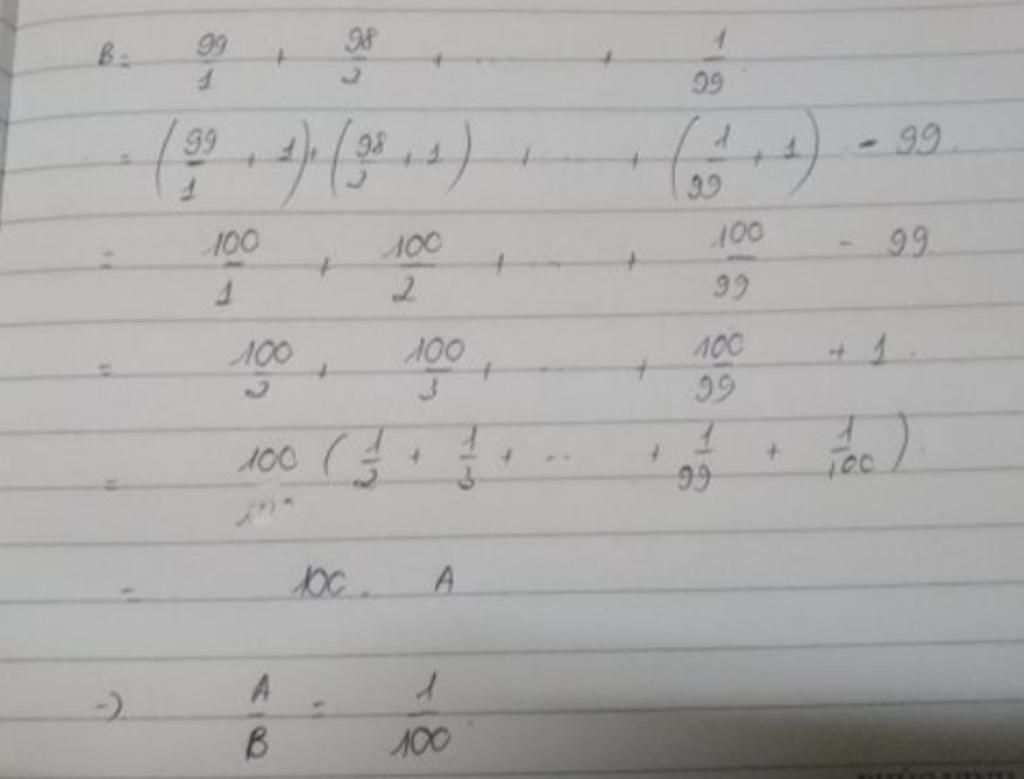 B = 99/1 + 98/2 + ..... + 1/99
= (99/1 + 1) + (98/2 + 1) + ... + (1/99 + 1) - 99
= 100/1 + 100/2 + ... + 100/99 - 99
= 100/2 + 100/3 + ... + 100/99 + 1
= 100 (1/2 + 1/3 + ... + 1/99 + 1/100)
= 100 . A
→ A/B = 1/100